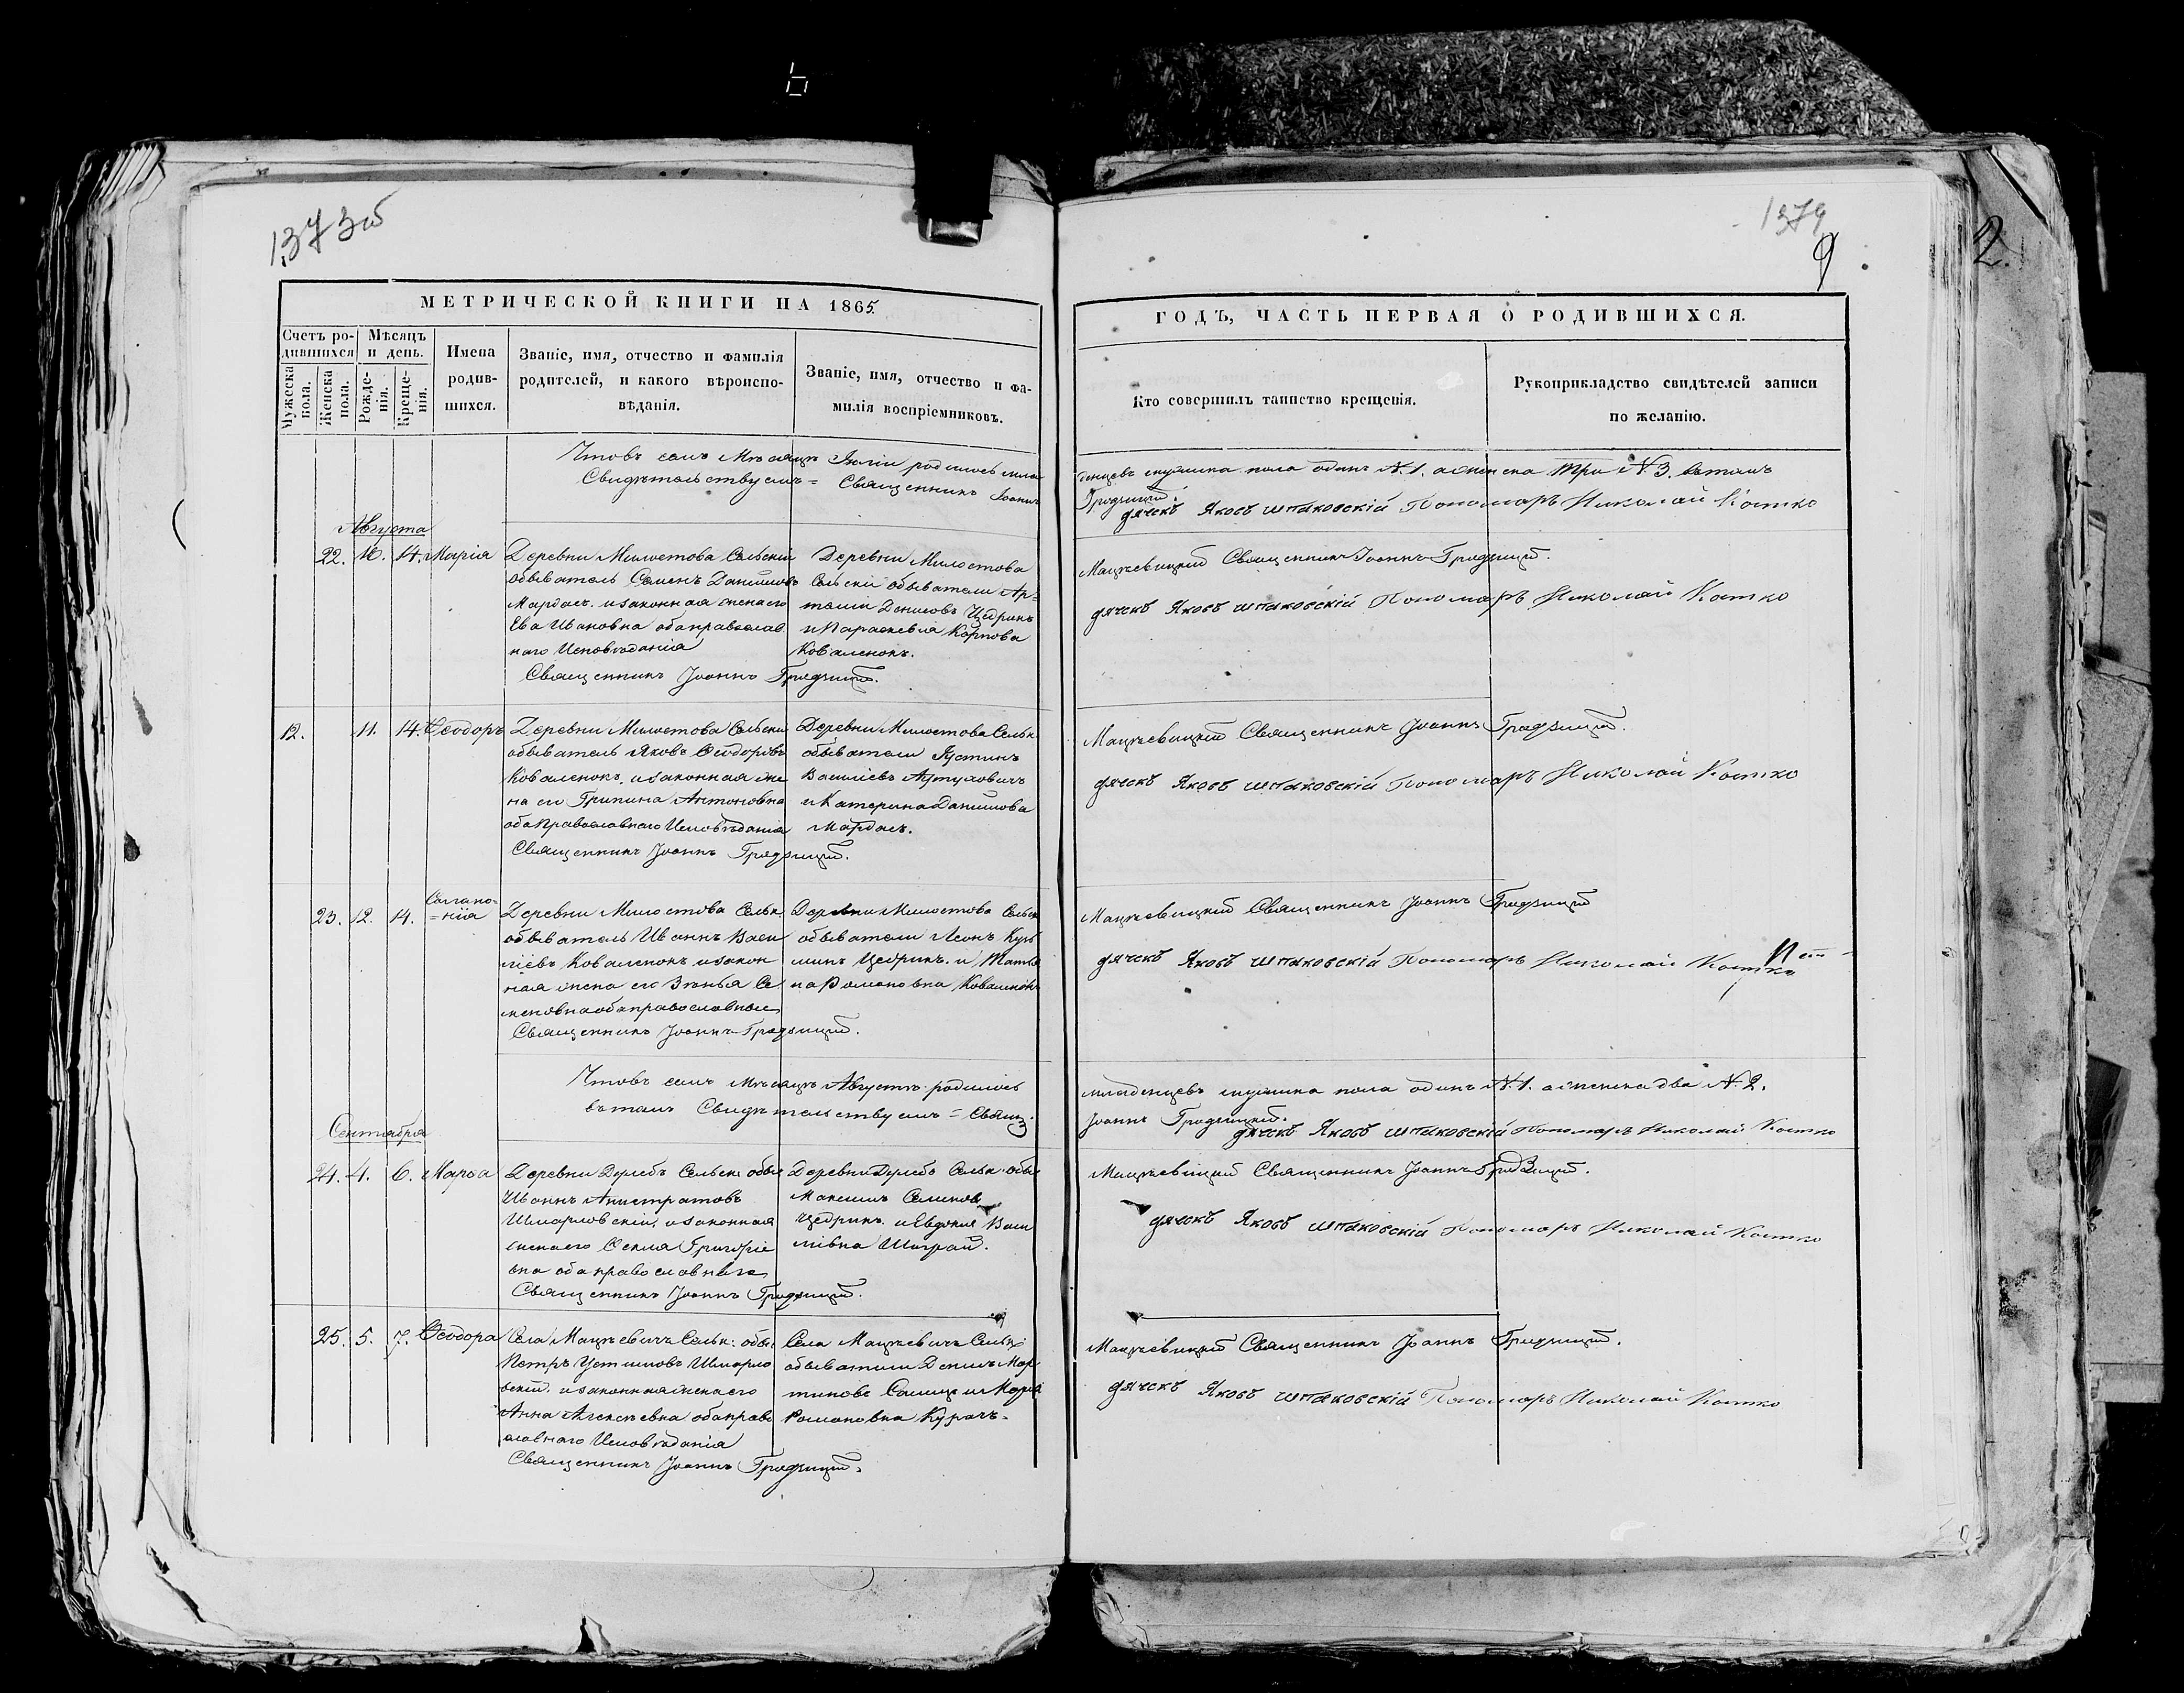 1373 об
1374
9
2.
МЕТРИЧЕСКОЙ КНИГИ НА 1865
ГОДЪ, ЧАСТЬ ПЕРВАЯ О РОДИВШИХСЯ.
Счетъ родившихся
Мѣсяцъ и день.
Мужеска пола.
Женска пола.
Рожденія.
Крещенія.
Имена родившихся.
Званіе, имя, отчество и фамилія
родителей, и какого вѣроиспо-
вѣданія.
Званіе, имя, отчество и фа-
милія воспріемниковъ.
Кто совершилъ таинство крещенія.
Рукоприкладство свидѣтелей записи
по желанію.
Что въ семъ Мѣсяцѣ Іюліи родилось мла
денцевъ мужеска пола одинъ №1. а женска три №3. въ томъ
Свидѣтельствуемъ = Священникъ Іоаннъ
Гродзицкій.
дячекъ Яковъ Шпаковскій Пономарь Николай Костко
Августа
22. 10. 14. Марія
Деревни Милостова Сельскій
обыватель Семенъ Даниловъ
Мардасъ. и законная жена его
Ева Ивановна оба православ
наго Исповѣданія
Священникъ Іоаннъ Гродзицкій.
Деревни Милостова
Сельскіи обыватели Ар-
темій Денисовъ Цедрикъ
и Параскевія Карпова
Коваленокъ.
Мацкевицкій Священникъ Іоаннъ Гродзицкій.
дячекъ Яковъ Шпаковскій Пономарь Николай Костко
12. 11. 14. Ѳеодоръ
Деревни Милостова Сельскій
обыватель Яковъ Ѳеодоровъ
Коваленокъ. и законная же
на его Грипина Антоновна
оба Православнаго Исповѣданія
Священникъ Іоаннъ Гродзицкій.
Деревни Милостова Сельк.
обыватели Іустинъ
Василіевъ
и Катерина Данилова
Мардасъ.
Мацкевицкій Священникъ Іоаннъ Гродзицкій.
дячекъ Яковъ Шпаковскій Пономарь Николай Костко
23. 12. 14. Соломо-
=нія
Деревни Милостова Сельк
обыватель Иванъ Васи
ліевъ Коваленокъ и закон
ная жена его Зѣновья Се
меновна оба православные
Священникъ Іоаннъ Гродзицкій.
Деревни Милостова Сельск
обыватели Леонъ Кузь
минъ Цедрикъ. и Татья
на Романовна Коваленокъ
Мацкевицкій Священникъ Іоаннъ Гродзицкій
дячекъ Яковъ Шпаковскій Пономарь Николай Костко
Что въ семъ Мѣсяцѣ Августѣ родилось
младенцевъ мужеска пола одинъ №1. а женска два №2.
въ томъ Свидѣтельствуемъ = Свящ.
Іоаннъ Гродзицкій.
дячекъ Яковъ Шпаковскій Пономарь Николай Костко
Сентября
24. 4. 6. Марѳа
Деревни Дулебъ Сельск. обыв
Иванъ Анистратовъ
Шмарловскій, и законная
жена его Ѳекла Григоріе
вна оба православныя
Священникъ Іоаннъ Гродзицкій.
Деревни Дулебъ Сельк. обыв
Максимъ Семеновъ
Цедрикъ. и Евдокія Васи
ліевна Шаграй.
Мацкевицкій Священникъ Іоаннъ Гродзицкій.
дячекъ Яковъ Шпаковскій Пономарь Николай Костко
25. 5. 7. Ѳеодора
Села Мацкевичъ Сельк: обыв
Петръ Устиновъ Шмарло
вскій. и законная жена его
Анна Алексѣевна оба право
славнаго Исповѣданія
Священникъ Іоаннъ Гродзицкій.
Села Мацкевичъ Сельк:
обыватели Денисъ Мар
тиновъ и Марія
Романовна Курачъ.
Мацкевицкій Священникъ Іоаннъ Гродзицкій.
дячекъ Яковъ Шпаковскій Пономарь Николай Костко